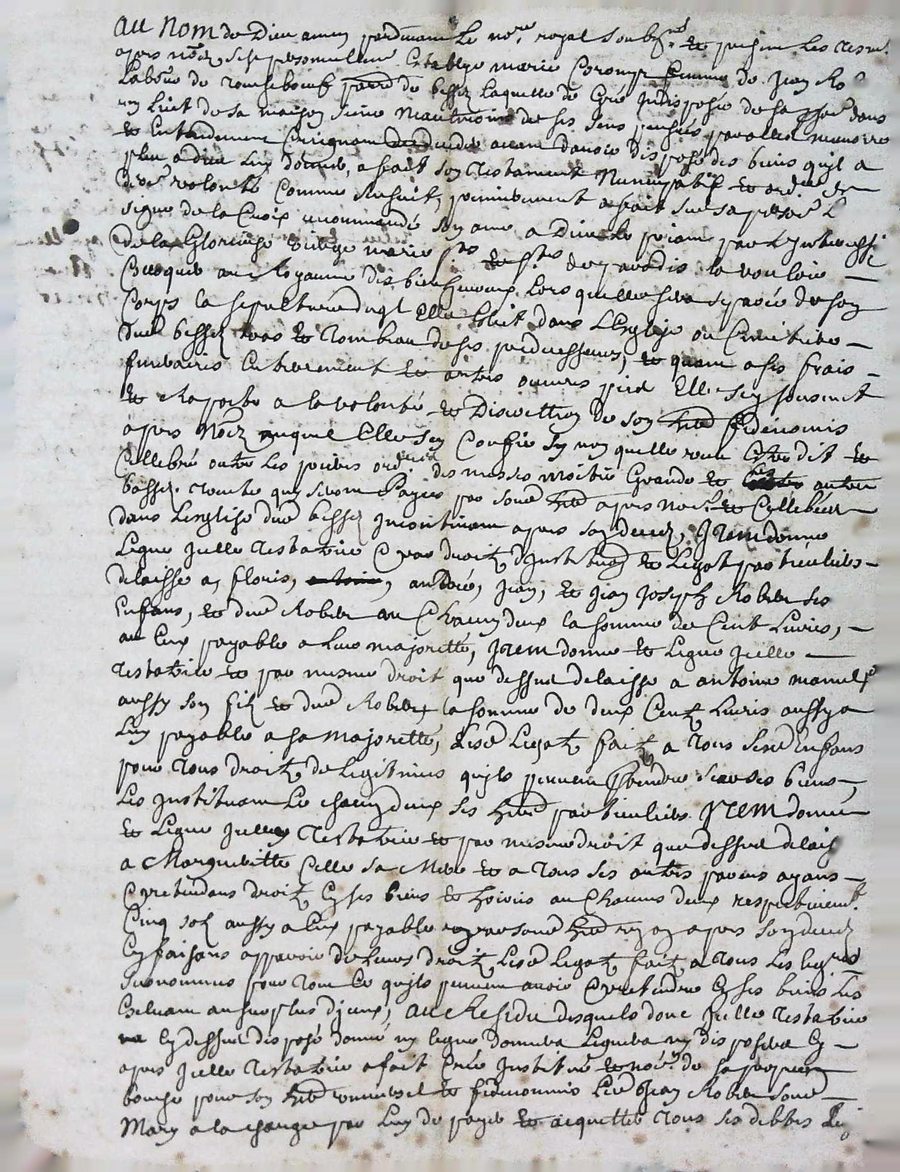 au nom de Dieu amen pardevant Le no.re royal soubs.né et presens Les tesm.
apres nōēs, s'est personnellement Establye marie femme de Jean Ro
Labōūr de de bessey laquelle de Gré Indisposée de sa dans
un Lict de sa maison mai de ses sens pensées parolle memoire
et Entendement Craignant de deceder avant d'avoir disposé des biens qu'il a
pleu a dieu Luy donner, a fait son testament Nuncupatif et ordre de
der.e volonté Comme s'ensuit, premierement a fait sur sa personne L
signe de la Croix recommandé son ame a Dieu Le priant par L'Intercessi
de la Glorieuse vierge marie s.ts et s.tes de paradis la vouloir
au Royaume des bienheureux Lors quelle sera separée de son
Corps la sepulture duql Elle Eslit dans L'Esglize ou Cimetiere
dud bessey et Tombeau de ses predecesseurs, et quant a ses frais
funeraires Enterrement et autres œuvres pies Elle s'en soumet
et raporte a la volonté et Discrettion de son herr fidenommé
apres Nōē auquel Elle s'en Confie synon quelle veut Estre dit et
Cellebré outre Les prieres ord.res des messes moitié Grandes et autre
basses. toutes qui seront Payées par sond herr apres nom.é et Cellebrées
dans Lesglise dud bessey Incontinant apres son decez, Item donne
Legue Jcelle testatrice Et par droit d'Instituon et Legat particulier
delaisse a, floris, andré, Jean, et Jean Joseph Rober ses
Enfans, et dud Rober au Chacun deux la somme de Cent Livres,
au Eux payable a Leur majoretté, Jtem donne et Legue Jcelle
testatrice et par mesme droit que dessus delaisse a antoine marcel
aussy son fils et dud Rober, la somme de deux Cent Livres aussy a
Luy payable a sa majoretté, Lesd Legatz faitz a tous sesd Enfans
pour tous droitz de Legitimes qu'ils peuvent Pretendre sur ses biens
Les Instituant Les chacun deux ses herrs particuliers Jtem donne
et Legue Jcelle testatrice et par mesme droit que dessus delais
a Margueritte Celle sa Mere et a tous ses autres parens ayans
Et pretendans droit En ses biens et hoiries au Chacuns deux respectivem.t
Cinq solz aussy a Eux payable par sond herr apres son decez
En faisans apparoir de Leurs droitz Lesd Legatz faitz a tous Les leg.res
susnommés pour tout Ce quils peuvent avoir Et pretendre En ses biens Les
Excluant au surplus d'jceux, au Residu desquels dont Jcelle testatrice
na Cy dessus disposé donné ny legué donnera Leguera ny disposera Cy
apres Jcelle testatrice a fait Créé Institué et nōē de sa propre
bouche pour son herr universel et fidenommé Led Jean Rober sond
Mary a la charge par Luy de payer et acquitter tous ses debtes